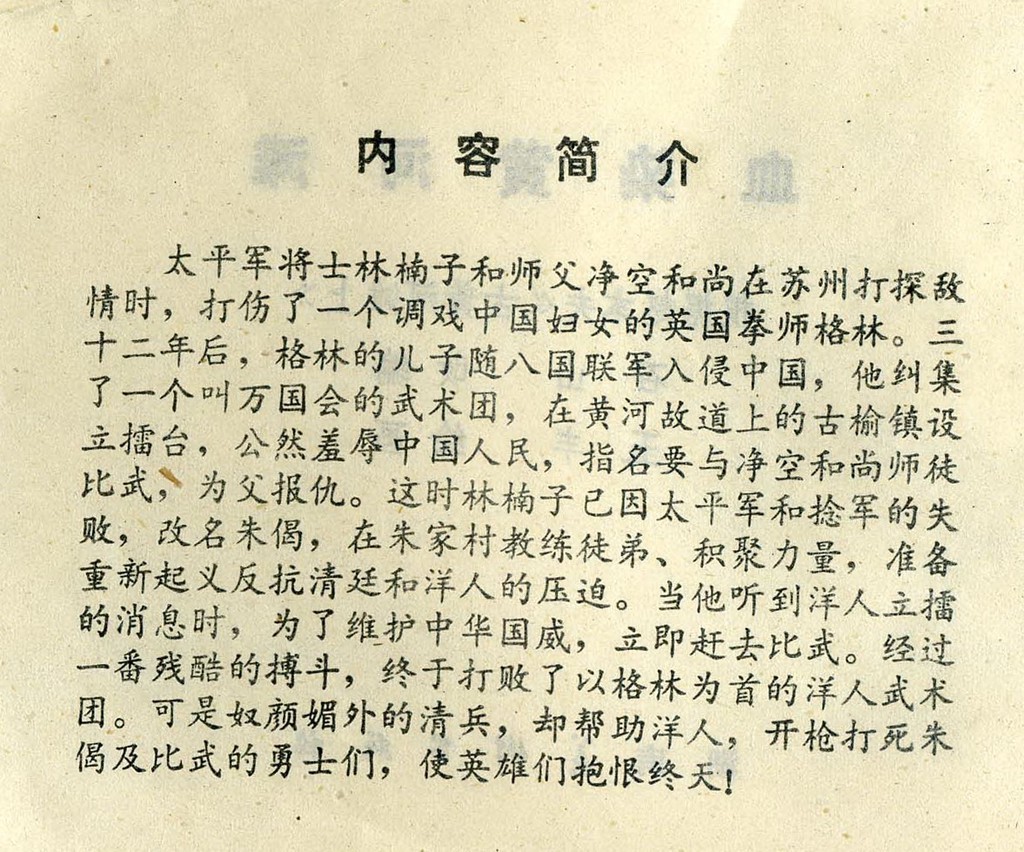 内容简介
太平军将士林楠子和师父净空和尚在苏州打探敌
情时，打伤了一个调戏中国妇女的英国拳师格林。三
十二年后，格林的儿子随八国联军入侵中国，他纠集
了一个叫万国会的武术团，在黄河故道上的古榆镇设
立擂台，公然羞辱中国人民，指名要与净空和尚师徒
比武，为父报仇。这时林楠子已因太平军和捻军的失
败，改名朱偈，在朱家村教练徒弟、积聚力量，准备
重新起义反抗清廷和洋人的压迫。当他听到洋人立擂
的消息时，为了维护中华国威，立即赶去比武。经过
一番残酷的搏斗，终于打败了以格林为首的洋人武术
团。可是奴颜媚外的清兵，却帮助洋人，开枪打死朱
偈及比武的勇士们，使英雄们抱恨终天！